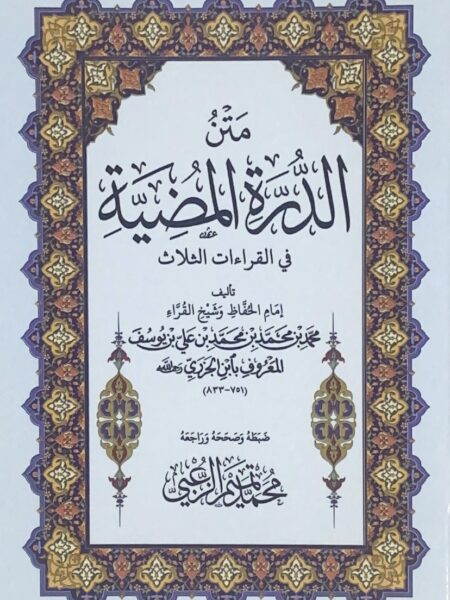 مَتْنُ
الدُّرَّةِ المُضِيَّةِ
في القراءات الثلاث
تأليف
إِمَامِ الحُفَّاظِ وَشَيْخِ القُرَّاءِ
مُحَمَّدِ بْنِ مُحَمَّدِ بْنِ مُحَمَّدِ بْنِ عَلِيِّ بْنِ يُوسُفَ
المَعْرُوفِ بِابْنِ الجَزَرِيِّ رَحِمَهُ اللهُ
(٧٥١-٨٣٣)
ضَبَطَهُ وَصَحَّحَهُ وَرَاجَعَهُ
مُحَمَّد تَمِيم الزُّعْبِي